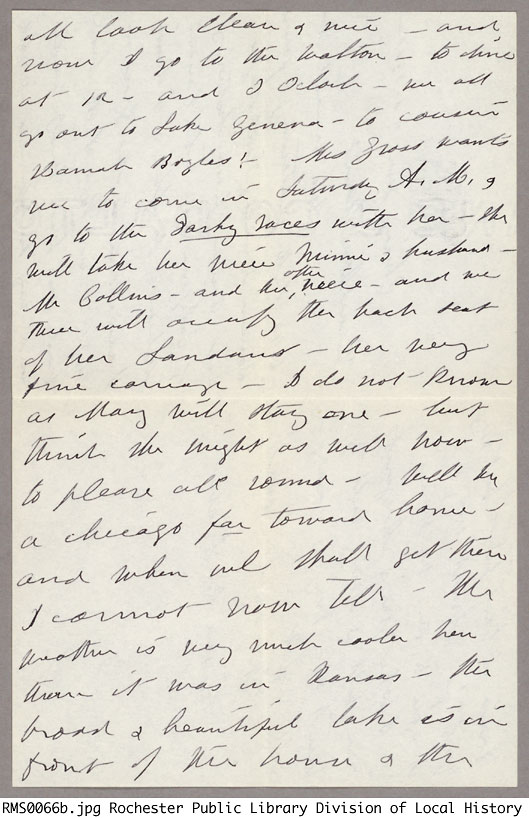 all look clean & nice - and
now I go to the Walton - to dine
at 12 - and 2 O'Clock - we all
go out to Lake Geneva - to cousin
Hannah Boyles! - Mrs Gross wants
me to come in Saturday A.M. &
go to the Darby races with her - she
will take her niece Minnie & husband -
Mr Collins - and her other niece - and we
three will occupy the back seat
of her Landaus - her very
fine carriage - I do not know
as May will stay one - but
think she might as well now -
to please all round - Will be
a chicago far toward home -
and when we shall get there
I cannot now tell - The
weather is very much cooler here
than it was in Kansas - the
broad & beautiful lake is in
front of the house & the
RMS0066b.jpg Rochester Public Library Division of Local History